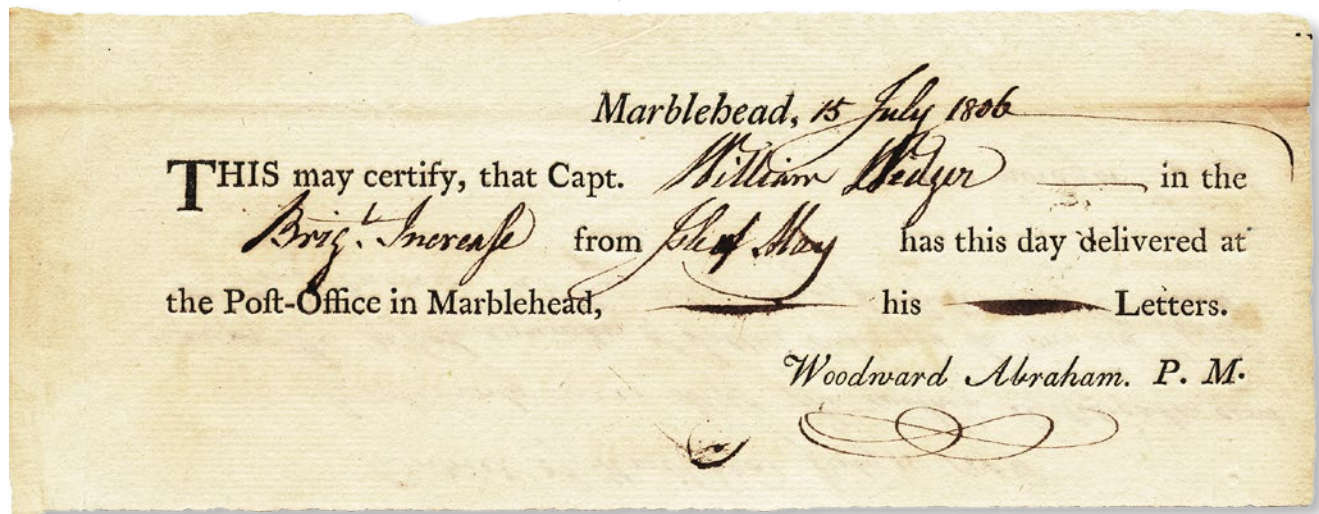 Marblehead, 15 July 1806
THIS may certify, that Capt. William Widger in the
Brigt. Increase from Isle of May has this day delivered at
the Post-Office in Marblehead, his Letters.
Woodward Abraham. P. M.